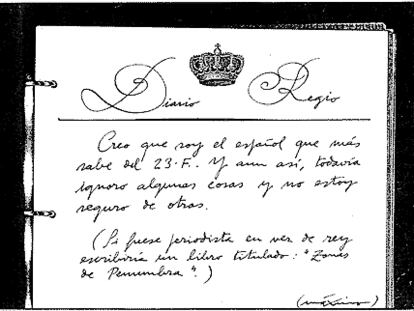 Diario Regio
Creo que soy el español que más
sabe del 23-F. Y aun así, todavía
ignoro algunas cosas y no estoy
seguro de otras.
(Si fuese periodista en vez de rey
escribiría un libro titulado: "Zonas
de Penumbra".)
(máximo)